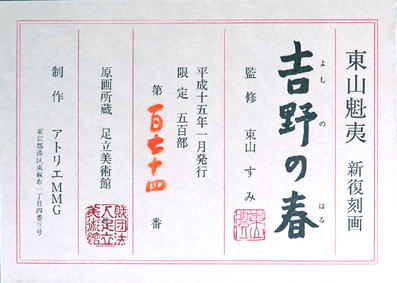 東山魁夷 新復刻画
吉野の春
よしの はる
監修 東山すみ
平成十五年一月発行
限定 五百部
第 百七十四 番
原画所蔵 足立美術館
財団法
人足立
美術館
制作 アトリエMMG
東京都港区東麻布一丁目四番三号